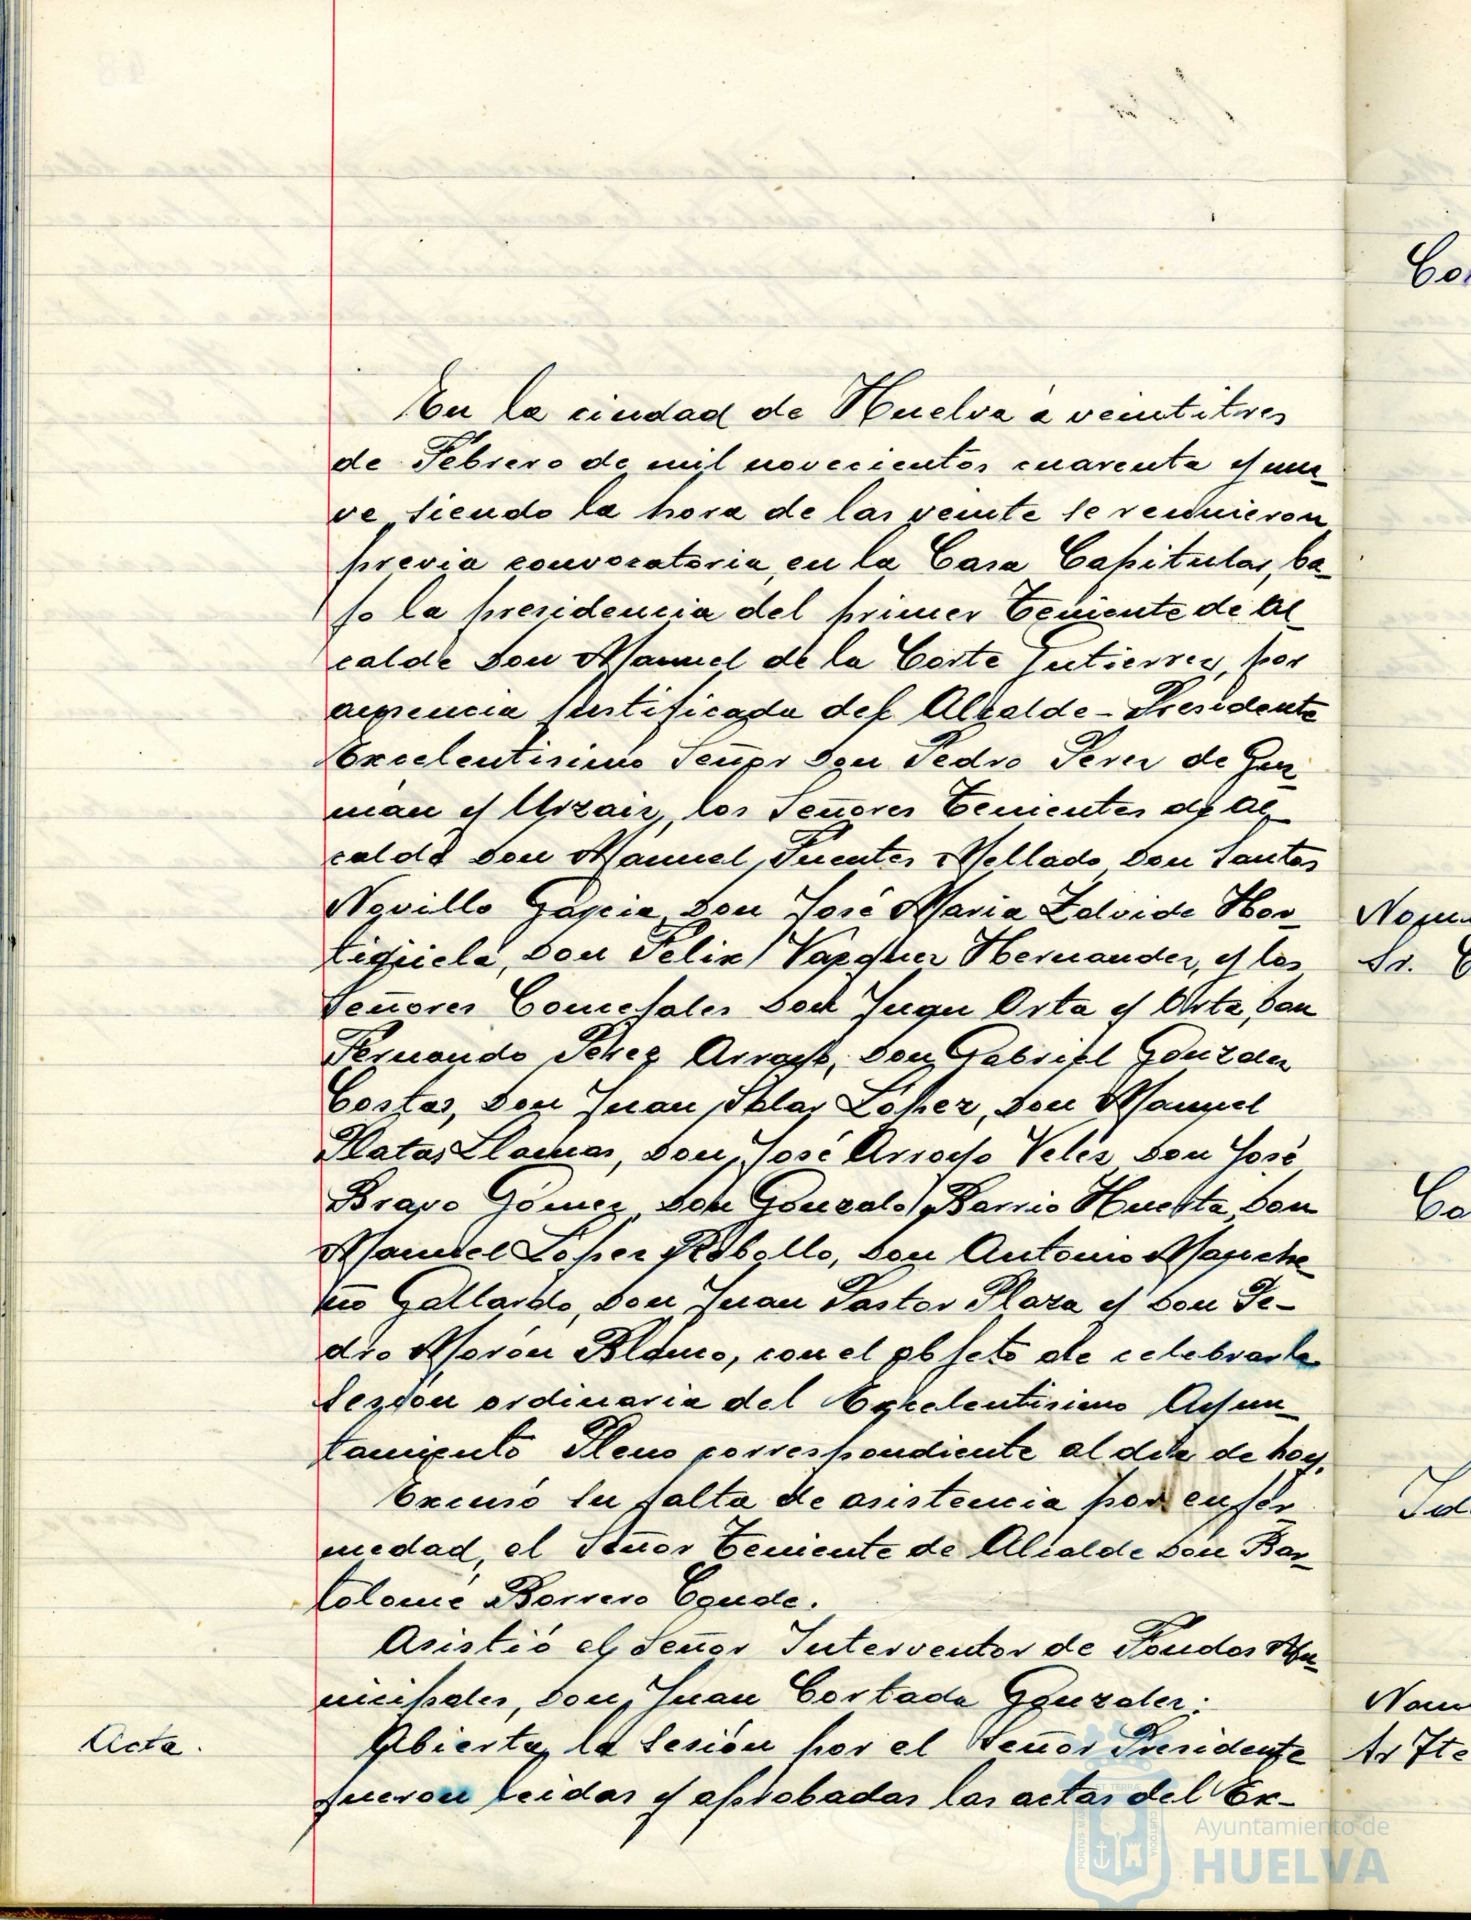 En la ciudad de Huelva a veintitres
de Febrero de mil novecientos cuarenta y nue-
ve, siendo la hora de las veinte se reunieron
previa convocatoria, en la Casa Capitular, ba-
jo la presidencia del primer Teniente de Al-
calde Don Manuel de la Corte Gutierrez, por
ausencia justificada del Alcalde-Presidente
Excelentisimo Señor Don Pedro Perez de Guz-
mán y Urzaiz, los Señores Tenientes de Al-
calde Don Manuel Fuentes Mellado, Don Santos
Novillo García, Don José Maria Zalvide Hor-
tigüela, Don Felix Vazquez Hernandez, y los
Señores Concejales Don Juan Orta y Orta, Don
Fernando Pérez Arroyo, Don Gabriel Gonzalez
Costas, Don Juan Salas López, Don Manuel
Platas Llamas, Don José Arroyo Veléz, Don José
Bravo Gómez, Don Gonzalo Barrio Huerta, Don
Manuel López Rebollo, Don Antonio Manche-
ño Gallardo, Don Juan Pastor Plaza y Don Pe-
dro Morón Blanco, con el objeto de celebrar la
Sesión ordinaria del Excelentisimo Ayun-
tamiento Pleno correspondiente al día de hoy.
Excusó su falta de asistencia por enfer-
medad, el Señor Teniente de Alcalde Don Bar-
tolomé Borrero Conde.
Asistió el Señor Interventor de Fondos Mu-
nicipales, Don Juan Cortada Gonzalez.
Acta. Abierta la Sesión por el Señor Presidente
fueron leidas y aprobadas las actas del Ex-
Co
Sr.
Co
Sr Tte
PORTUS MARIS ET TERRÆ CUSTODIA
Ayuntamiento de
HUELVA